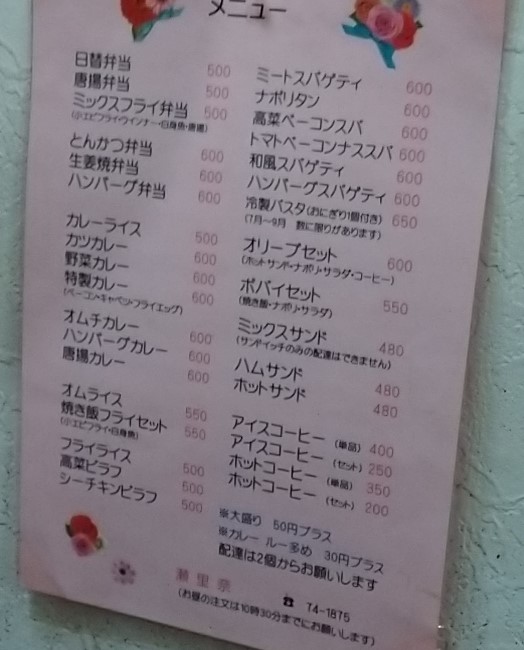 メニュー
日替弁当 500
唐揚弁当 500
ミックスフライ弁当 500
(小エビフライ・ウインナー・白身魚・唐揚)
とんかつ弁当 600
生姜焼弁当 600
ハンバーグ弁当 600
カレーライス 500
カツカレー 600
野菜カレー 600
特製カレー 600
(ベーコン・キャベツ・フライエッグ)
オムチカレー 600
ハンバーグカレー 600
唐揚カレー 600
オムライス 550
焼き飯フライセット 550
(小エビフライ・白身魚)
フライライス 500
高菜ピラフ 500
シーチキンピラフ 500
ミートスパゲティ 600
ナポリタン 600
高菜ベーコンスパ 600
トマトベーコンナススパ 600
和風スパゲティ 600
ハンバーグスパゲティ 600
冷製パスタ(おにぎり1個付き) 650
(7月〜9月 数に限りがあります)
オリーブセット 600
(ホットサンド・ナポリ・サラダ・コーヒー)
ポパイセット 550
(焼き飯・ナポリ・サラダ)
ミックスサンド 480
(サンドイッチのみの配達はできません)
ハムサンド 480
ホットサンド 480
アイスコーヒー (単品) 400
アイスコーヒー (セット) 250
ホットコーヒー (単品) 350
ホットコーヒー (セット) 200
※大盛り 50円プラス
※カレー ルー多め 30円プラス
配達は2個からお願いします
瀬里奈 ☎ 74-1875
(お昼の注文は10時30分までにお願いします)